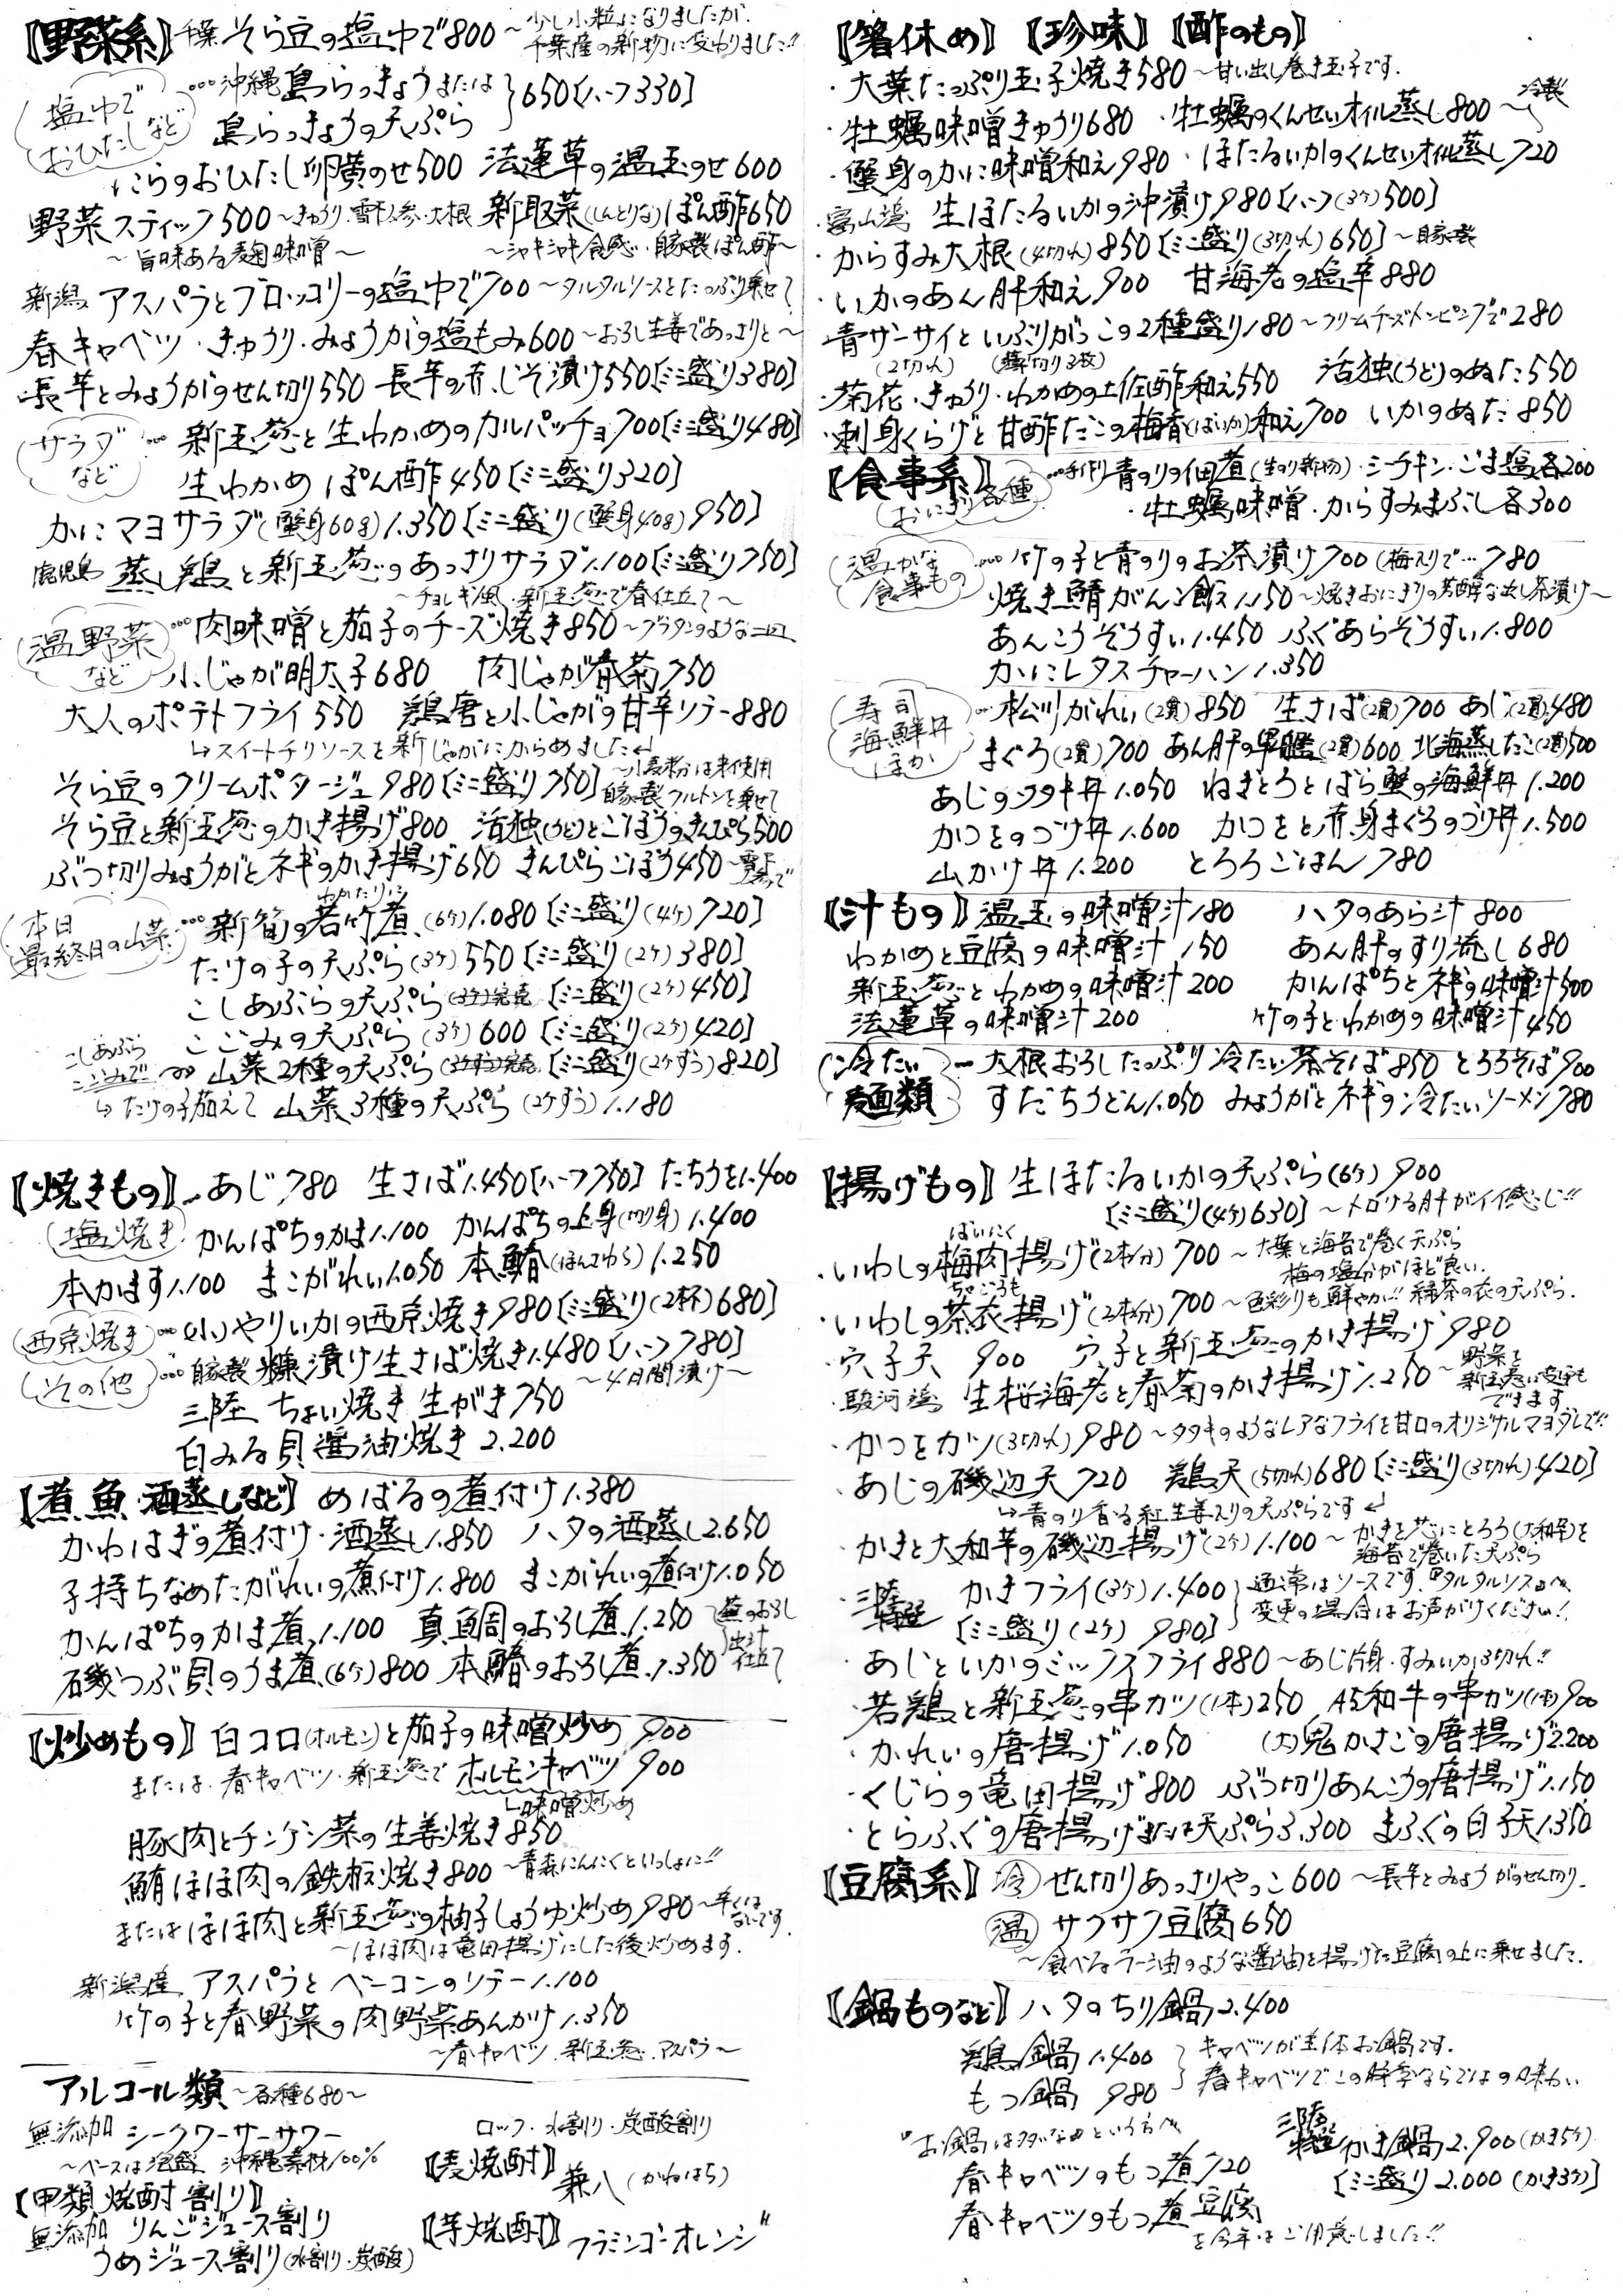 【野菜系】千葉 そら豆の塩ゆで800 ～少し小粒になりましたが、
千葉産の新物に変わりました!!
塩ゆで おひたしなど … 沖縄 島らっきょうまたは
島らっきょうの天ぷら } 650〔ハーフ330〕
にらのおひたし卵黄のせ500 法蓮草の温玉のせ600
野菜スティック500 ～きゅうり・雪下人参・大根 新取菜(しんとりな)ぽん酢650
～旨味ある麹味噌～ ～シャキシャキ食感・自家製ぽん酢～
新潟 アスパラとブロッコリーの塩ゆで700 ～タルタルソースをたっぷり乗せて
春キャベツ・きゅうり・みょうがの塩もみ600 ～おろし生姜であっさりと～
長芋とみょうがのせん切り550 長芋の赤じそ漬け550〔ミニ盛り380〕
サラダなど … 新玉葱と生わかめのカルパッチョ700〔ミニ盛り480〕
生わかめ ぽん酢450〔ミニ盛り320〕
かにマヨサラダ(蟹身60g)1.350〔ミニ盛り(蟹身40g)950〕
鹿児島 蒸し鶏と新玉葱のあっさりサラダ1.100〔ミニ盛り750〕
～チョレギ風・新玉葱で春仕立て～
温野菜など … 肉味噌と茄子のチーズ焼き850 ～グラタンのような一皿
小じゃが明太子680 肉じゃが春菊750
大人のポテトフライ550 鶏唐と小じゃがの甘辛ソテー880
↳スイートチリソースを新じゃがにからめました↲
そら豆のクリームポタージュ980〔ミニ盛り750〕 ～小麦粉は未使用
自家製クルトンを乗せて
そら豆と新玉葱のかき揚げ800 活独(うど)とごぼうのきんぴら500
ぶつ切りみょうがとネギのかき揚げ650 きんぴらごぼう450
本日最終日の山菜 … 新筍の若竹煮(わかたけに)(6ケ)1.080〔ミニ盛り(4ケ)720〕
たけの子の天ぷら(3ケ)550〔ミニ盛り(2ケ)380〕
こしあぶらの天ぷら(3ケ)完売〔ミニ盛り(2ケ)450〕
こごみの天ぷら(3ケ)600〔ミニ盛り(2ケ)420〕
こしあぶら こごみで ⇒ 山菜2種の天ぷら(3ケずつ)完売〔ミニ盛り(2ケずつ)820〕
↳たけの子加えて 山菜3種の天ぷら(2ケずつ)1.180
【箸休め】【珍味】【酢のもの】
・大葉たっぷり玉子焼き580 ～甘い出し巻き玉子です。
・牡蠣味噌きゅうり680 ・牡蠣のくんせいオイル蒸し800 ～冷製
・蟹身のかに味噌和え980 ・ほたるいかのくんせいオイル蒸し720
富山湾 生ほたるいかの沖漬け980〔ハーフ(3ケ)500〕
・からすみ大根(4切れ)850〔ミニ盛り(3切れ)650〕～自家製
・いかのあん肝和え900 甘海老の塩辛880
・青サーサイといぶりがっこの2種盛り180 ～クリームチーズトッピングで280
(2切れ) (薄切り3枚)
・菊花・きゅうり・わかめの土佐酢和え550 活独(うど)のぬた550
・刺身くらげと甘酢たこの梅香(ばいか)和え700 いかのぬた850
【食事系】 おにぎり各種 … 手作り青のりの佃煮(生のり新物)・シーチキン・ごま塩各200
・牡蠣味噌・からすみまぶし各300
温かな食事もの … 竹の子と青のりのお茶漬け700(梅入りで…780
焼き鯖がんこ飯1.150 ～焼きおにぎりの芳醇な出し茶漬け～
あんこうぞうすい1.450 ふぐあらぞうすい1.800
かにレタスチャーハン1.350
寿司 海鮮丼 ほか … 松川がれい(2貫)850 生さば(2貫)700 あじ(2貫)480
まぐろ(2貫)700 あん肝の軍艦(2貫)600 北海蒸したこ(2貫)500
あじのタタキ丼1.050 ねぎとろとばら蟹の海鮮丼1.200
かつをのづけ丼1.600 かつをと赤身まぐろのづけ丼1.500
山かけ丼1.200 とろろごはん780
【汁もの】温玉の味噌汁180 ハタのあら汁800
わかめと豆腐の味噌汁150 あん肝のすり流し680
新玉葱とわかめの味噌汁200 かんぱちとネギの味噌汁500
法蓮草の味噌汁200 竹の子とわかめの味噌汁450
冷たい麺類 … 大根おろしたっぷり冷たい茶そば850 とろろそば900
すだちうどん1.050 みょうがとネギの冷たいソーメン780
【焼きもの】… あじ780 生さば1.450〔ハーフ750〕 たちうを1.400
塩焼き かんぱちのかま1.100 かんぱちの上身(切身)1.400
本かます1.100 まこがれい1.050 本鰆(ほんさわら)1.250
西京焼き … (小)やりいかの西京焼き980〔ミニ盛り(2杯)680〕
その他 … 自家製 糠漬け生さば焼き1.480〔ハーフ780〕
～4日間漬け～
三陸 ちょい焼き 生がき750
白みる貝醤油焼き2.200
【煮魚・酒蒸しなど】めばるの煮付け1.380
かわはぎの煮付け・酒蒸し1.850 ハタの酒蒸し2.650
子持ちなめたがれいの煮付け1.800 まこがれいの煮付け1.050
かんぱちのかま煮1.100 真鯛のおろし煮1.250
磯つぶ貝のうま煮(6ケ)800 本鰆のおろし煮1.350 } 蕪のおろし出汁仕立て
【炒めもの】白コロ(ホルモン)と茄子の味噌炒め900
または 春キャベツ・新玉葱で ホルモンキャベツ900
↳味噌炒め
豚肉とチンゲン菜の生姜焼き850
鮪ほほ肉の鉄板焼き800 ～青森にんにくといっしょに!!
またはほほ肉と新玉葱の柚子しょうゆ炒め980 ～辛くはないです
～ほほ肉は竜田揚げにした後炒めます。
新潟産 アスパラとベーコンのソテー1.100
竹の子と春野菜の肉野菜あんかけ1.350
～春キャベツ・新玉葱・アスパラ～
アルコール類 ～各種680～
無添加 シークワーサーサワー
～ベースは泡盛 沖縄素材100%
【甲類焼酎割り】
無添加 りんごジュース割り
うめジュース割り(水割り・炭酸)
ロック・水割り・炭酸割り
【麦焼酎】 兼八(かねはち)
【芋焼酎】 フラミンゴオレンジ
【揚げもの】生ほたるいかの天ぷら(6ケ)900
〔ミニ盛り(4ケ)630〕～トロける肝がイイ感じ!!
・いわしの梅肉(ばいにく)揚げ(2本分)700 ～大葉と海苔で巻く天ぷら
梅の塩分がほど良い。
・いわしの茶衣(ちゃごろも)揚げ(2本分)700 ～色彩りも鮮やか!! 緑茶の衣の天ぷら。
・穴子天 900 穴子と新玉葱のかき揚げ980
・駿河湾 生桜海老と春菊のかき揚げ1.250 ～野菜を新玉葱に変更もできます
・かつをカツ(3切れ)980 ～タタキのようなレアなフライを甘口のオリジナルマヨダレで!!
・あじの磯辺天720 鶏天(5切れ)680〔ミニ盛り(3切れ)420〕
↳青のり香る紅生姜入りの天ぷらです↲
・かきと大和芋の磯辺揚げ(2ケ)1.100 ～かきを芯にとろろ(大和芋)を
海苔で巻いた天ぷら
・三陸 特選 かきフライ(3ケ)1.400 } 通常はソースです。『タルタルソース』へ
〔ミニ盛り(2ケ)980〕 変更の場合はお声がけください!
・あじといかのミックスフライ880 ～あじ片身・すみいか3切れ!!
・若鶏と新玉葱の串カツ(1本)250 A5和牛の串カツ(1本)900
・かれいの唐揚げ1.050 (大)鬼かさごの唐揚げ2.200
・くじらの竜田揚げ800 ぶつ切りあんこうの唐揚げ1.150
・とらふぐの唐揚げまたは天ぷら3.300 まふぐの白子天1.350
【豆腐系】(冷)せん切りあっさりやっこ600 ～長芋とみょうがのせん切り。
(温)サクサク豆腐650
～食べるラー油のような醤油を揚げた豆腐の上に乗せました。
【鍋ものなど】ハタのちり鍋2.400
鶏鍋1.400 } キャベツが主体お鍋です。
もつ鍋 980 春キャベツでこの時季ならではの味わい
『お鍋はタダな』という方へ
春キャベツのもつ煮720
春キャベツのもつ煮豆腐
を今年はご用意しました!!
三陸 特選 かき鍋2.900(かき5ケ)
〔ミニ盛り2.000(かき3ケ)〕